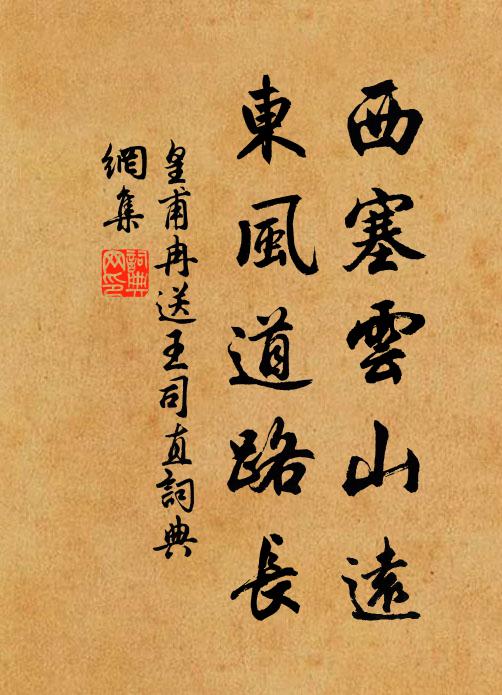 西塞雲山遠
東風道路長
皇甫冉送王司直詞典
網集
詞典网印